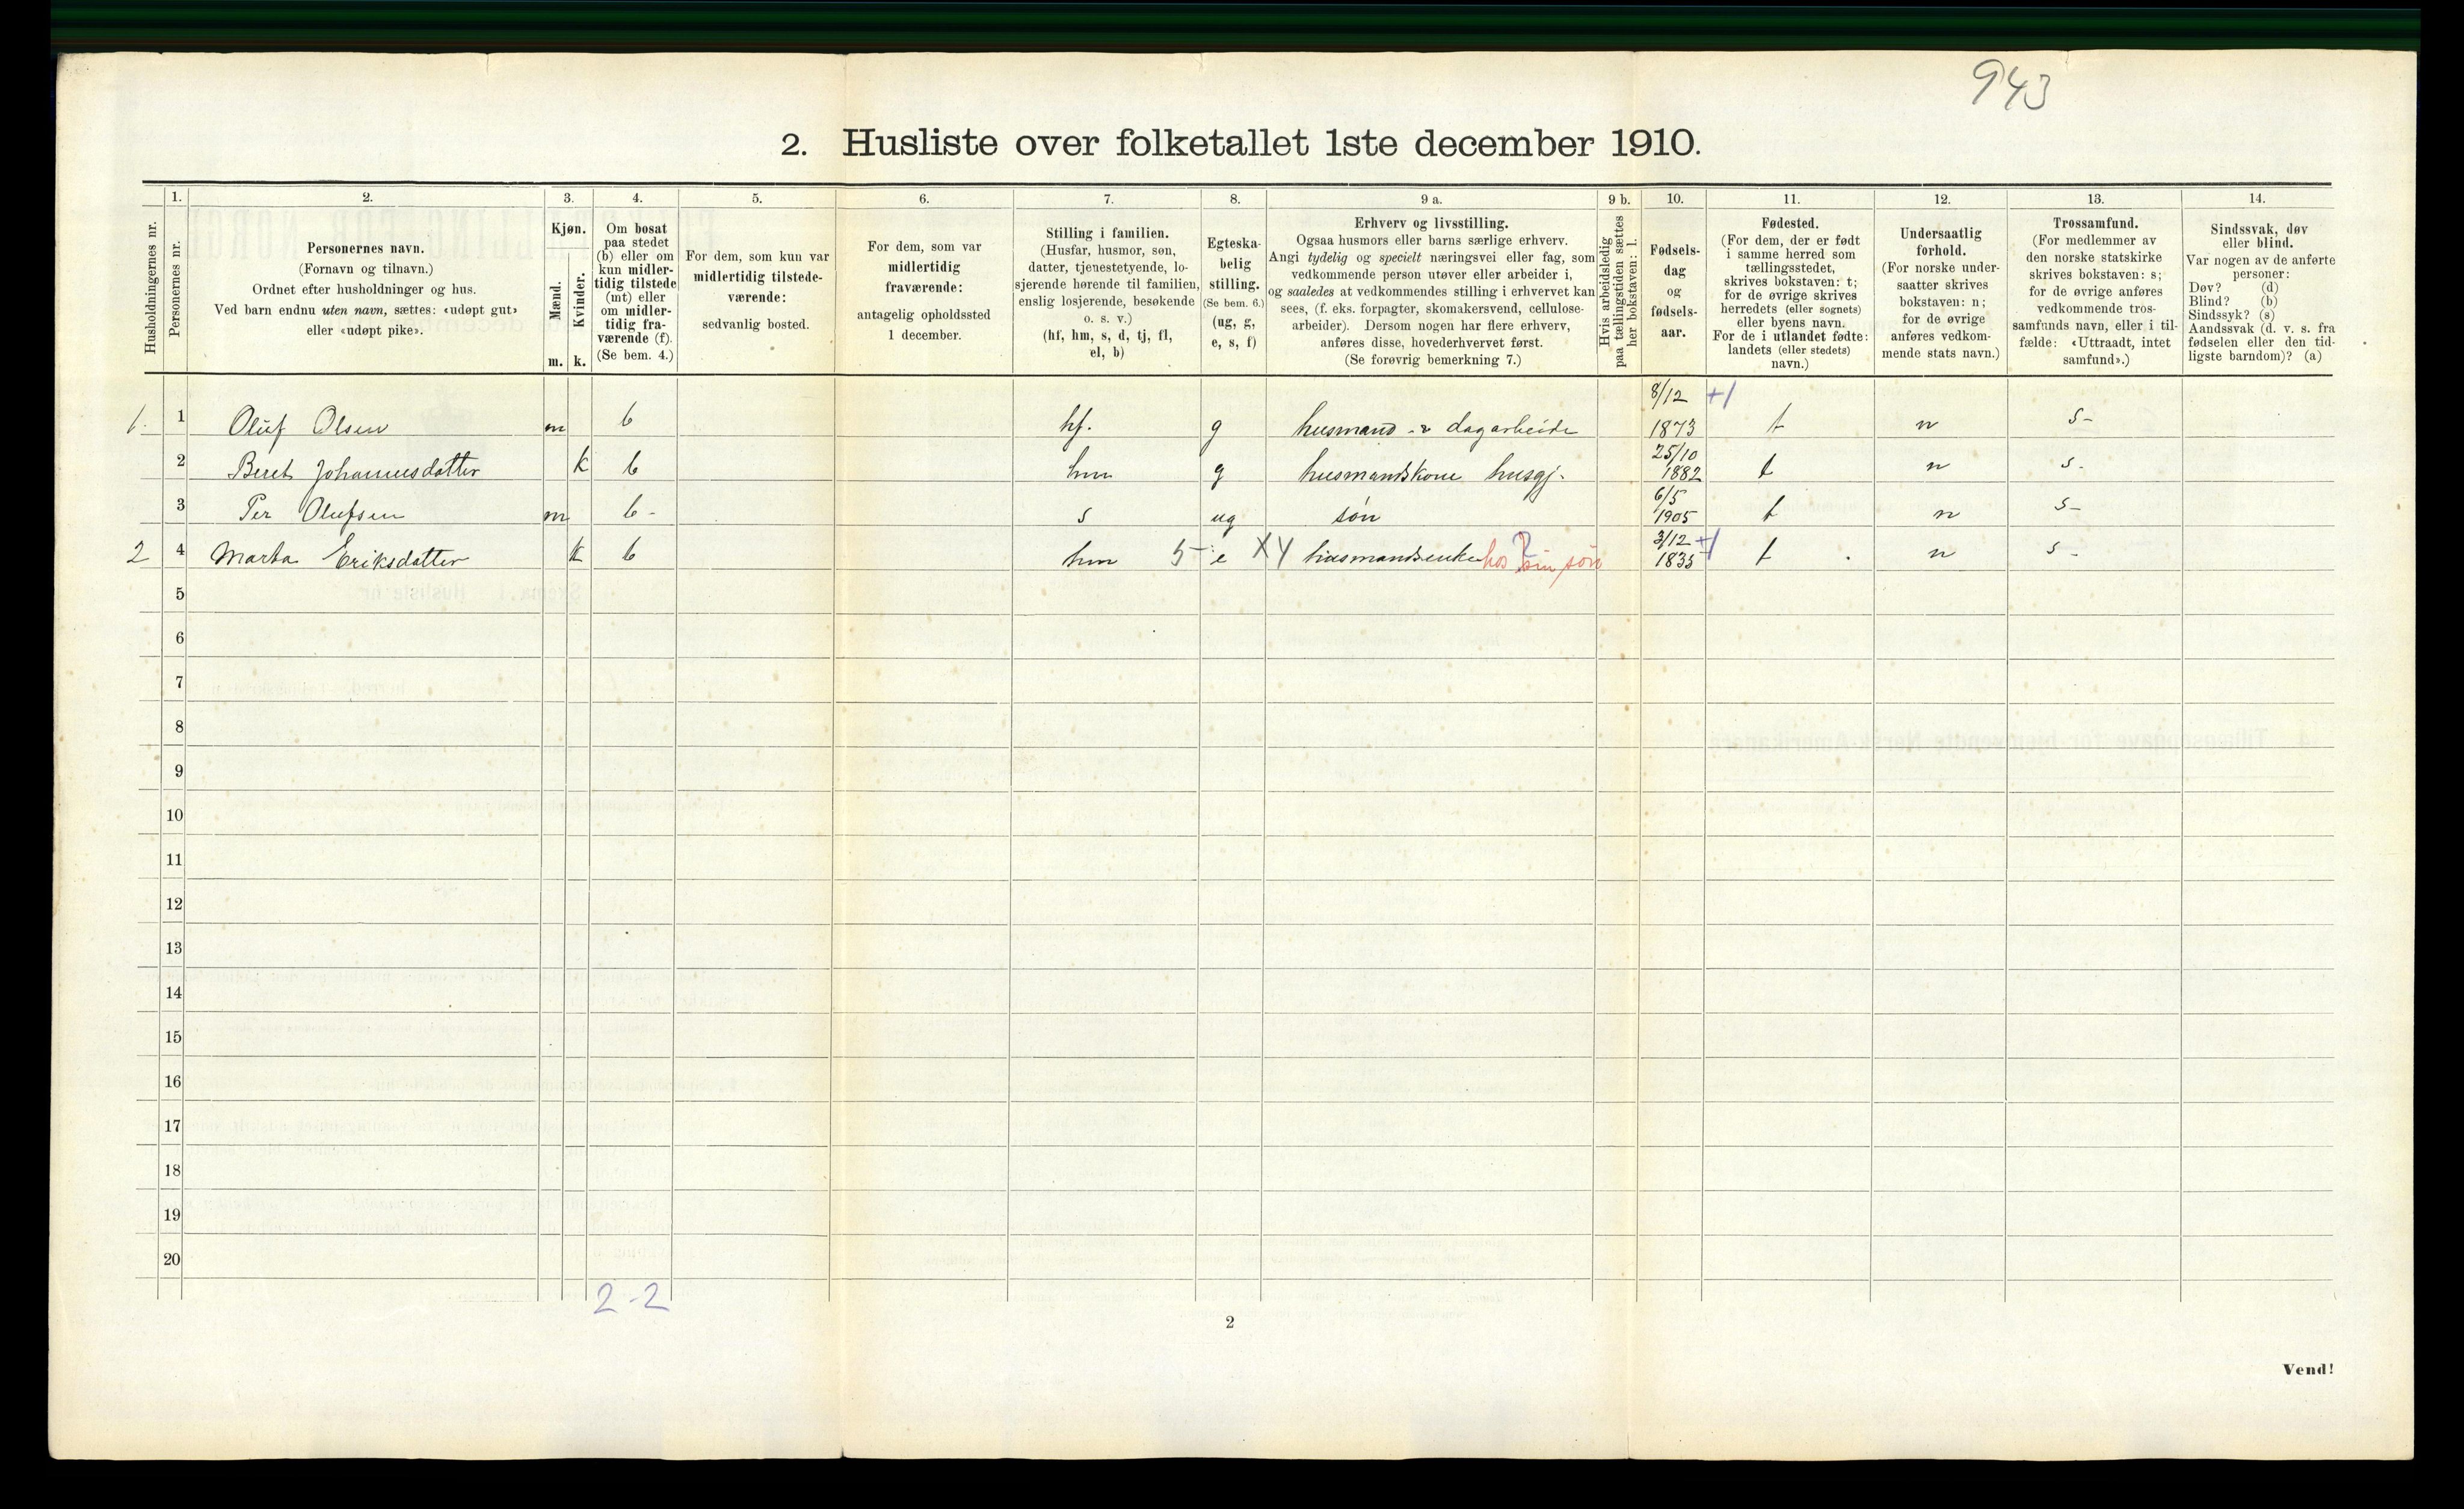 943
2. Husliste over folketallet 1ste december 1910.
Husholdningernes nr.
1.
Personernes nr.
2.
Personernes navn.
(Fornavn og tilnavn.)
Ordnet efter husholdninger og hus.
Ved barn endnu uten navn, sættes: «udøpt gut»
eller «udøpt pike».
3.
Kjøn.
Mænd.
Kvinder.
m. k.
4.
Om bosat
paa stedet
(b) eller om
kun midler-
tidig tilstede
(mt) eller
om midler-
tidig fra-
værende (f).
(Se bem. 4.)
5.
For dem, som kun var
midlertidig tilstede-
værende:
sedvanlig bosted.
6.
For dem, som var
midlertidig
fraværende:
antagelig opholdssted
1 december.
7.
Stilling i familien.
(Husfar, husmor, søn,
datter, tjenestetyende, lo-
sjerende hørende til familien,
enslig losjerende, besøkende
o. s. v.)
(hf, hm, s, d, tj, fl,
el, b)
8.
Egteska-
belig
stilling.
(Se bem. 6.)
(ug, g,
e, s, f)
9 a.
Erhverv og livsstilling.
Ogsaa husmors eller barns særlige erhverv.
Angi tydelig og specielt næringsvei eller fag, som
vedkommende person utøver eller arbeider i,
og saaledes at vedkommendes stilling i erhvervet kan
sees, (f. eks. forpagter, skomakersvend, cellulose-
arbeider). Dersom nogen har flere erhverv,
anføres disse, hovederhvervet først.
(Se forøvrig bemerkning 7.)
9 b.
Hvis arbeidsledig
paa tællingstiden sættes
her bokstaven: l.
10.
Fødsels-
dag
og
fødsels-
aar.
11.
Fødested.
(For dem, der er født
i samme herred som
tællingsstedet,
skrives bokstaven: t;
for de øvrige skrives
herredets (eller sognets)
eller byens navn.
For de i utlandet fødte:
landets (eller stedets)
navn.)
12.
Undersaatlig
forhold.
(For norske under-
saatter skrives
bokstaven: n;
for de øvrige
anføres vedkom-
mende stats navn.)
13.
Trossamfund.
(For medlemmer av
den norske statskirke
skrives bokstaven: s;
for de øvrige anføres
vedkommende tros-
samfunds navn, eller i til-
fælde: «Uttraadt, intet
samfund».)
14.
Sindssvak, døv
eller blind.
Var nogen av de anførte
personer:
Døv? (d)
Blind? (b)
Sindssyk? (s)
Aandssvak (d. v. s. fra
fødselen eller den tid-
ligste barndom)? (a)
1. 1 Oluf Olsen m b hf. g husmand & dagarbeide 8/12 1873 +1 t n s-
2 Beret Johannesdatter k b hm g husmandskone husgj. 25/10 1882 t n s.
3 Per Olufsen m b - s ug søn 6/5 1905 t n s-
2 4 Marta Eriksdatter k b hm 5- e XY husmandsenke hos sin søn ? 3/12 1835 +1 t n s-
5
6
7
8
9
10
11
12
13
14
15
16
17
18
19
20
2-2
2
Vend!